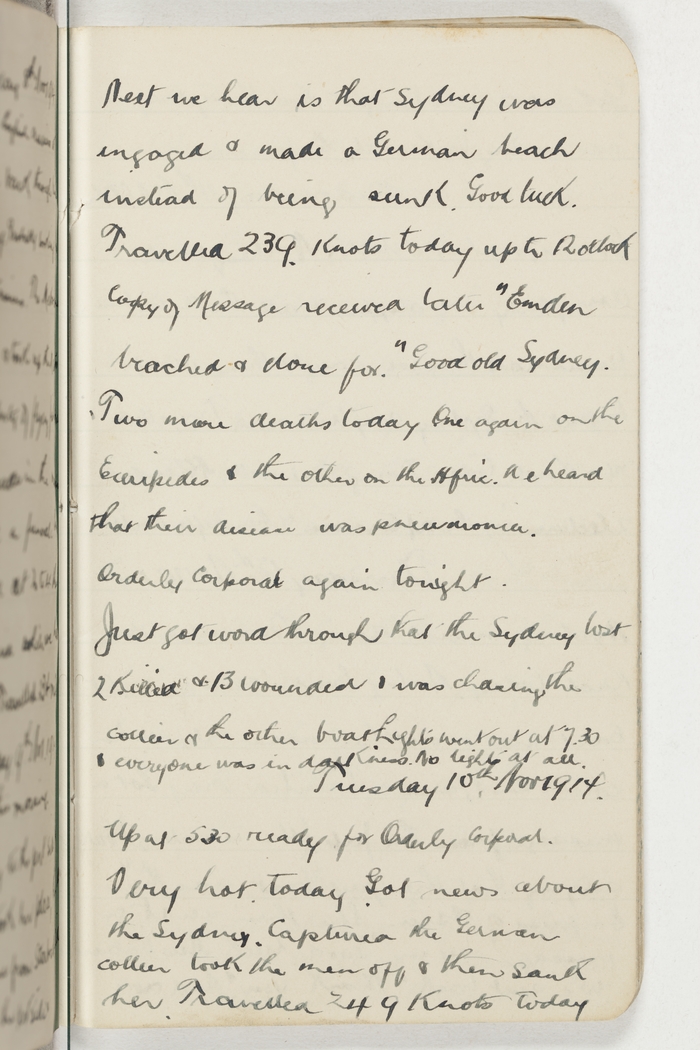 Next we hear is that Sydney was
ingaged & made a German beach
instead of being sunk. Good luck.
Travelled 239 Knots today up to 12 oclock
Copy of Message received later "Emden
beached & done for." Good old Sydney.
Two more deaths today One again on the
Euripedes & the other on the Afric. We heard
that their disease was pneumonia.
Orderly Corporal again tonight.
Just got word through that the Sydney lost
2 Killed & 13 wounded & was chasing the
collier & the other boat lights went out at 7.30
& everyone was in darkness. No lights at all.
Tuesday 10th Nov 1914.
Up at 530 ready for Orderly Corporal.
Very hot today Got news about
the Sydney. Captured the German
collier took the men off & then sank
her. Travelled 249 Knots today